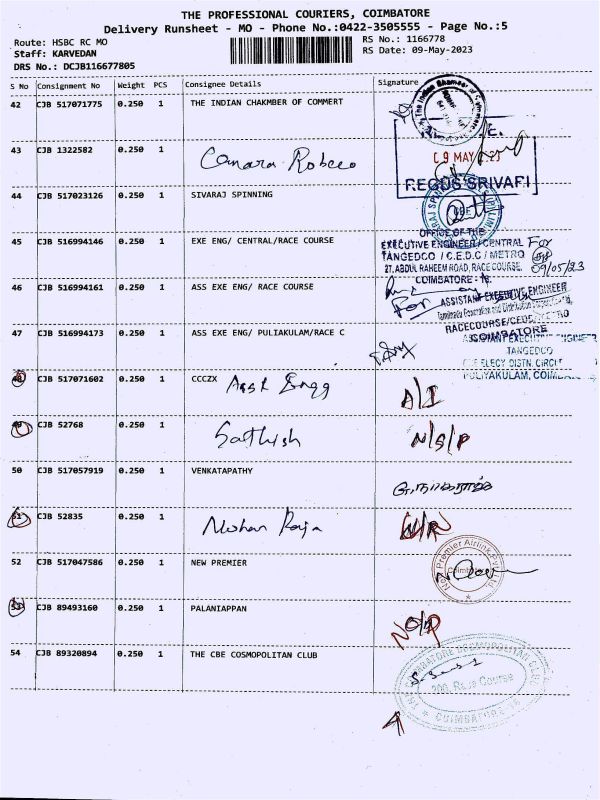 THE PROFESSIONAL COURIERS, COIMBATORE
Delivery Runsheet - MO - Phone No.:0422-3505555 - Page No.:5
Route: HSBC RC MO RS No.: 1166778
Staff: KARVEDAN RS Date: 09-May-2023
DRS No.: DCJB116677805
S No Consignment No Weight PCS Consignee Details Signature
42 CJB 517071775 0.250 1 THE INDIAN CHAKMBER OF COMMERT
43 CJB 1322582 0.250 1 Canara Robeco
09 MAY 23
REGUS SRIVARI
44 CJB 517023126 0.250 1 SIVARAJ SPINNING
45 CJB 516994146 0.250 1 EXE ENG/ CENTRAL/RACE COURSE
OFFICE OF THE
EXECUTIVE ENGINEER/CENTRAL For
TANGEDCO / C.E.D.C / METRO
27, ABDUL RAHEEM ROAD, RACE COURSE. 09/05/23
COIMBATORE
46 CJB 516994161 0.250 1 ASS EXE ENG/ RACE COURSE
For ASSISTANT EXECUTIVE ENGINEER
RACECOURSE/CEDC/METRO
COIMBATORE
47 CJB 516994173 0.250 1 ASS EXE ENG/ PULIAKULAM/RACE C
ASSISTANT EXECUTIVE ENGINEER
TANGEDCO
ELECY DISTN. CIRCLE
PULIYAKULAM, COIMBATORE
48 CJB 517071602 0.250 1 CCCZX Asst Engg A/I
49 CJB 52768 0.250 1 Sathish N/S/P
50 CJB 517057919 0.250 1 VENKATAPATHY
51 CJB 52835 0.250 1 Mohan Raja N/R
52 CJB 517047586 0.250 1 NEW PREMIER
New Premier Airlink Pvt Ltd
Coimbatore
53 CJB 89493160 0.250 1 PALANIAPPAN
54 CJB 89320894 0.250 1 THE CBE COSMOPOLITAN CLUB
THE COIMBATORE COSMOPOLITAN CLUB
200, Race Course
COIMBATORE